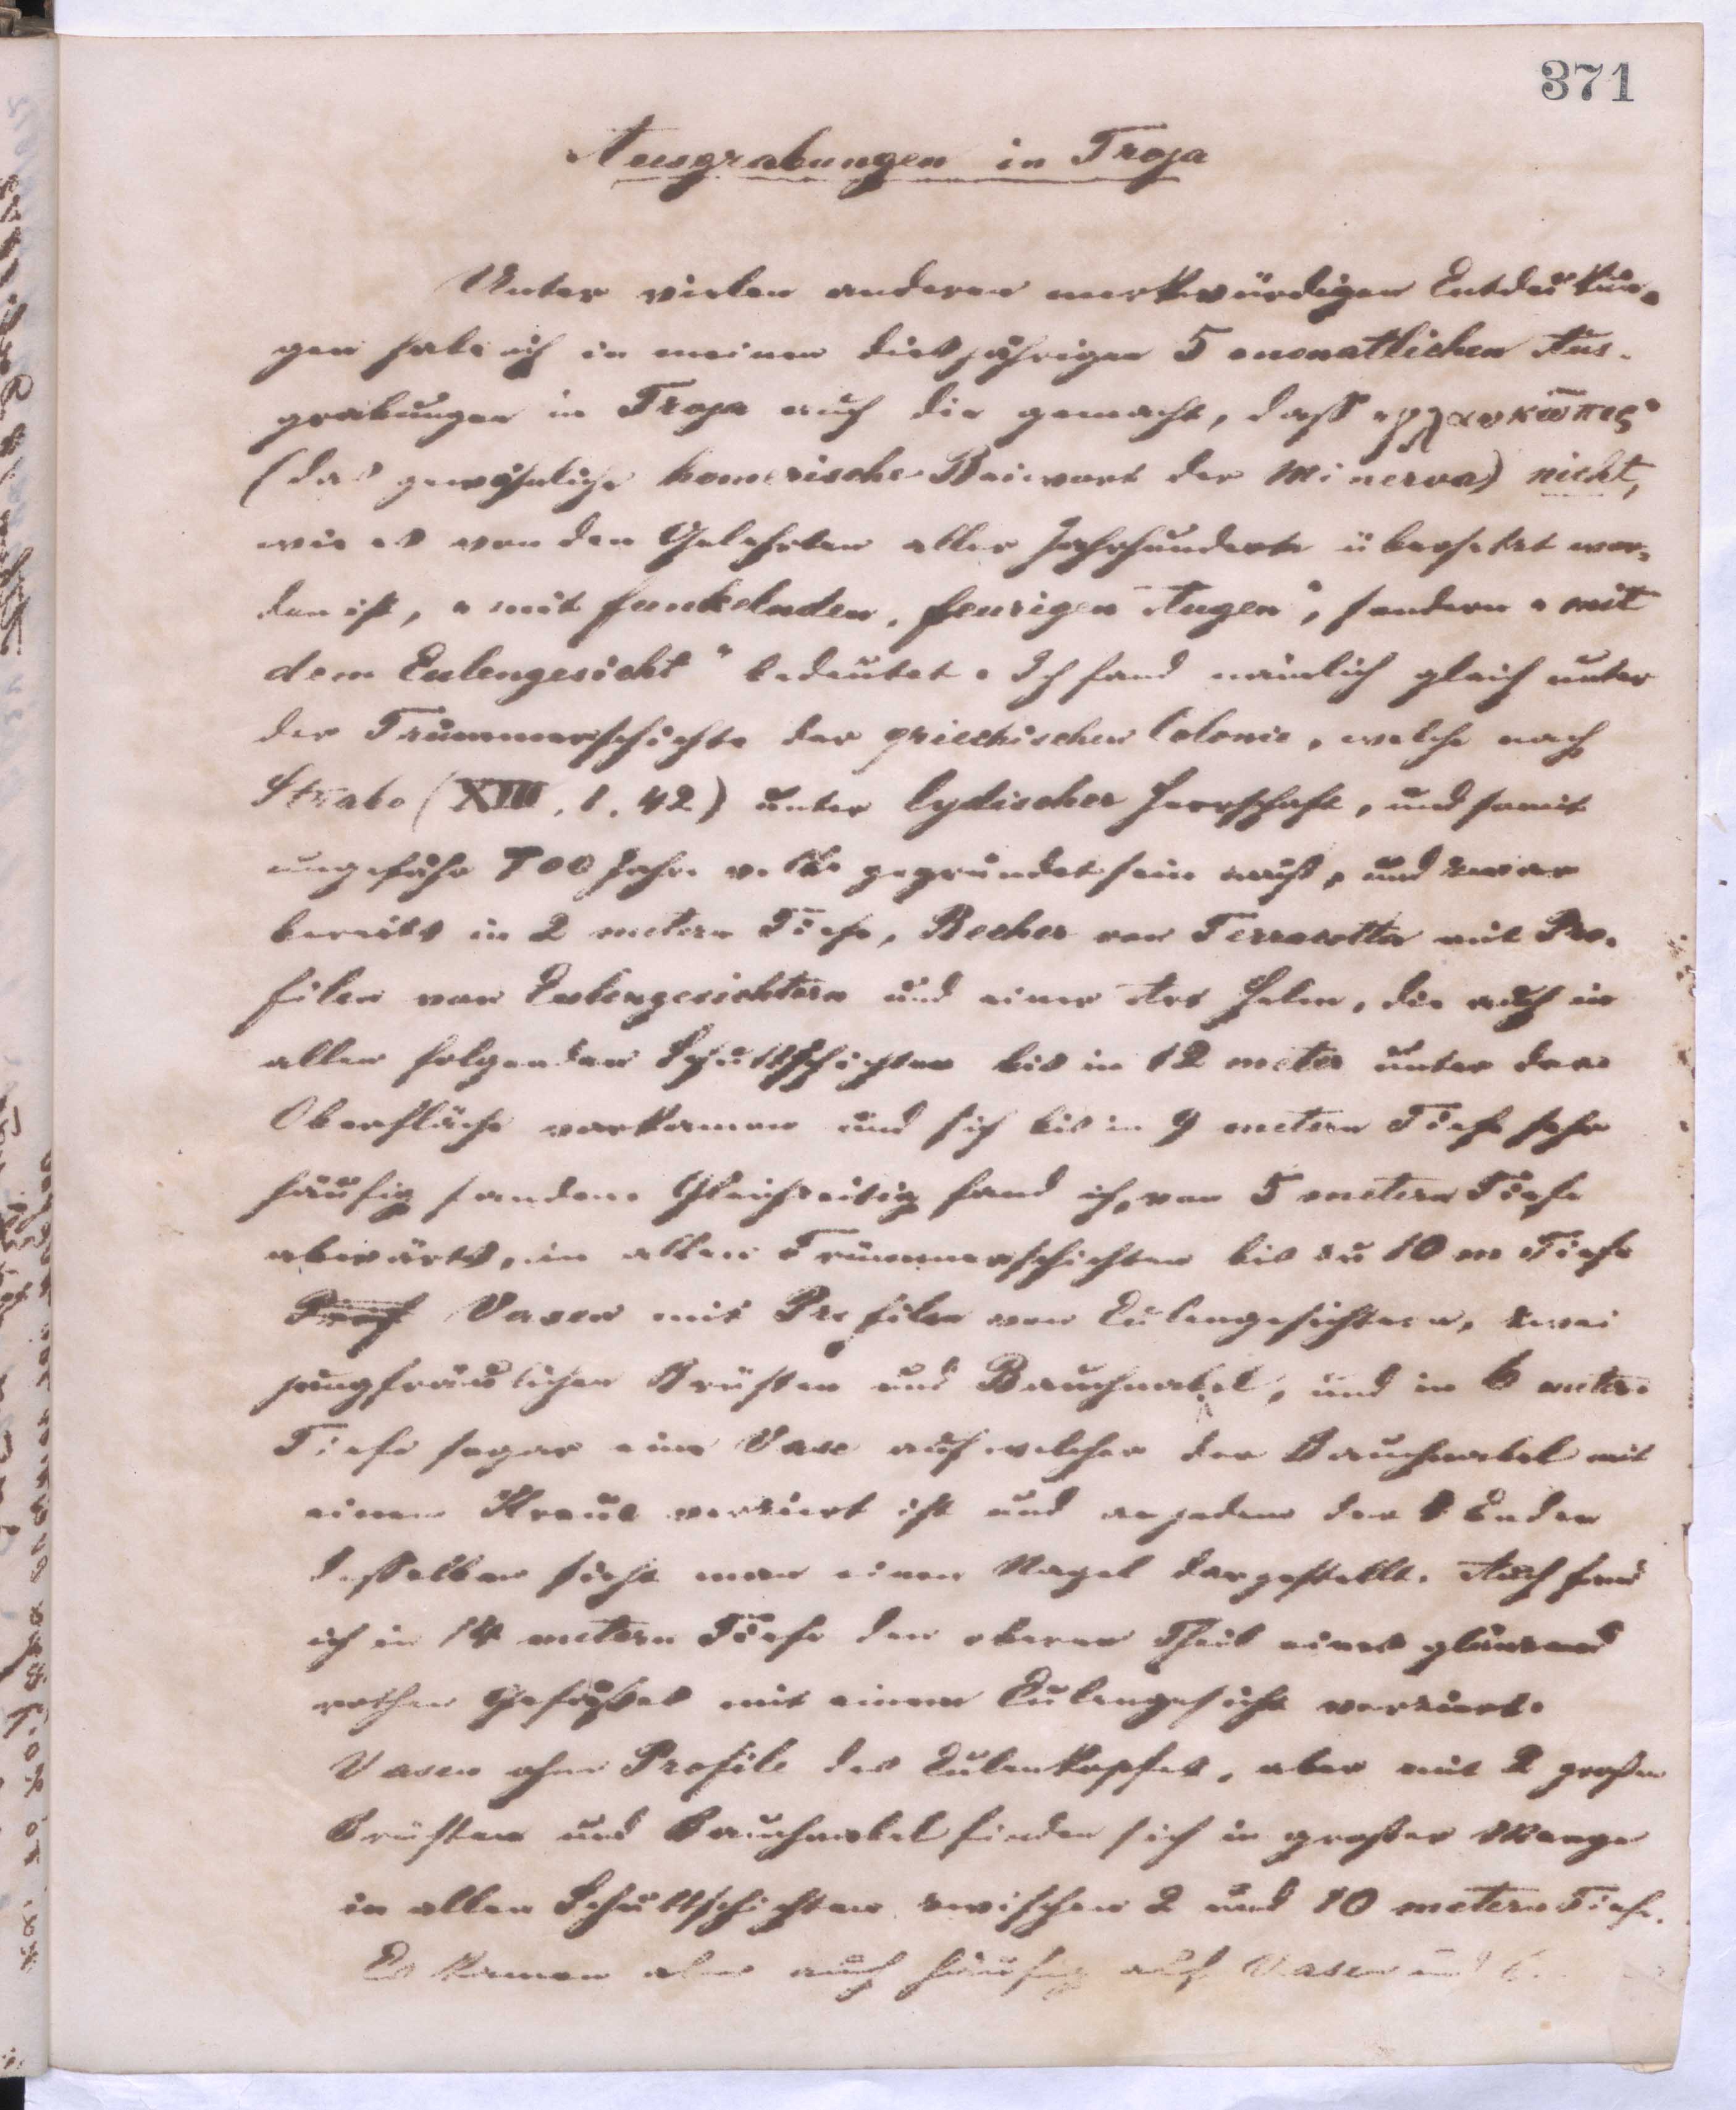 371
Ausgrabungen in Troja
Unter vielen anderen merkwürdigen Entdeckun-
gen habe ich in meinen diesjährigen 5 monatlichen Aus-
grabungen in Troja auch die gemacht, dass „γλαυκῶπις“
(das gewöhnliche homerische Beiwort der Minerva) nicht,
wie es von den Gelehrten aller Jahrhunderte übersetzt wor-
den ist, „mit funkelnden, feurigen Augen“, sondern „mit
dem Eulengesicht“ bedeutet. Ich fand nämlich gleich unter
der Trümmerschichte der griechischen Colonie, welche nach
Strabo (XIII, 1, 42) unter lydischer Herrschaft, und somit
ungefähr 700 Jahre v. Ch. gegründet sein muß, und zwar
bereits in 2 metern Tiefe, Becher von Terracotta mit Pro-
filen von Eulengesichtern und einer Art Helm, die auch in
allen folgenden Schuttschichten bis in 12 meter unter der
Oberfläche vorkamen und sich bis in 9 metern Tiefe sehr
häufig fanden. Gleichzeitig fand ich, von 5 metern Tiefe
abwärts, in allen Trümmerschichten bis zu 10 m Tiefe
Vasen mit Profilen von Eulengesichtern, zwei
jungfräulichen Brüsten und Bauchnabel, und in 6 metern
Tiefe sogar eine Vase auf welcher der Bauchnabel mit
einem Kreuz verziert ist und an jedem der 4 Enden
desselben sieht man einen Nagel dargestellt. Auch fand
ich in 14 metern Tiefe den oberen Theil eines glänzend
rothen Gefäßes mit einem Eulengesicht verziert.
Vasen ohne Profile des Eulenkopfes, aber mit 2 großen
Brüsten und Bauchnabel finden sich in großer Menge
in allen Schuttschichten zwischen 2 und 10 metern Tiefe.
Es kamen aber auch häufig auf Vasen und